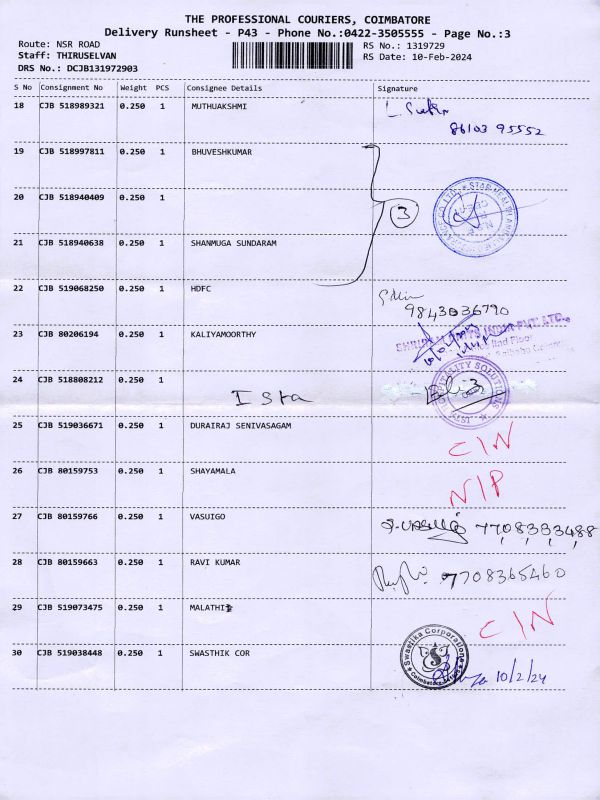 THE PROFESSIONAL COURIERS, COIMBATORE
Delivery Runsheet - P43 - Phone No.:0422-3505555 - Page No.:3
Route: NSR ROAD RS No.: 1319729
Staff: THIRUSELVAN RS Date: 10-Feb-2024
DRS No.: DCJB131972903
S No Consignment No Weight PCS Consignee Details Signature
18 CJB 518989321 0.250 1 MUTHUAKSHMI
86103 95552
19 CJB 518997811 0.250 1 BHUVESHKUMAR
20 CJB 518940409 0.250 1
3
21 CJB 518940638 0.250 1 SHANMUGA SUNDARAM
22 CJB 519068250 0.250 1 HDFC
9843036790
23 CJB 80206194 0.250 1 KALIYAMOORTHY
IInd Floor
24 CJB 518808212 0.250 1
HOSPITALITY SOLUTIONS
I Sta
25 CJB 519036671 0.250 1 DURAIRAJ SENIVASAGAM
CIN
26 CJB 80159753 0.250 1 SHAYAMALA
N/P
27 CJB 80159766 0.250 1 VASUIGO
7708383488
28 CJB 80159663 0.250 1 RAVI KUMAR
7708365460
29 CJB 519073475 0.250 1 MALATHI
CIN
30 CJB 519038448 0.250 1 SWASTHIK COR
Swastika Corporation
10/2/24